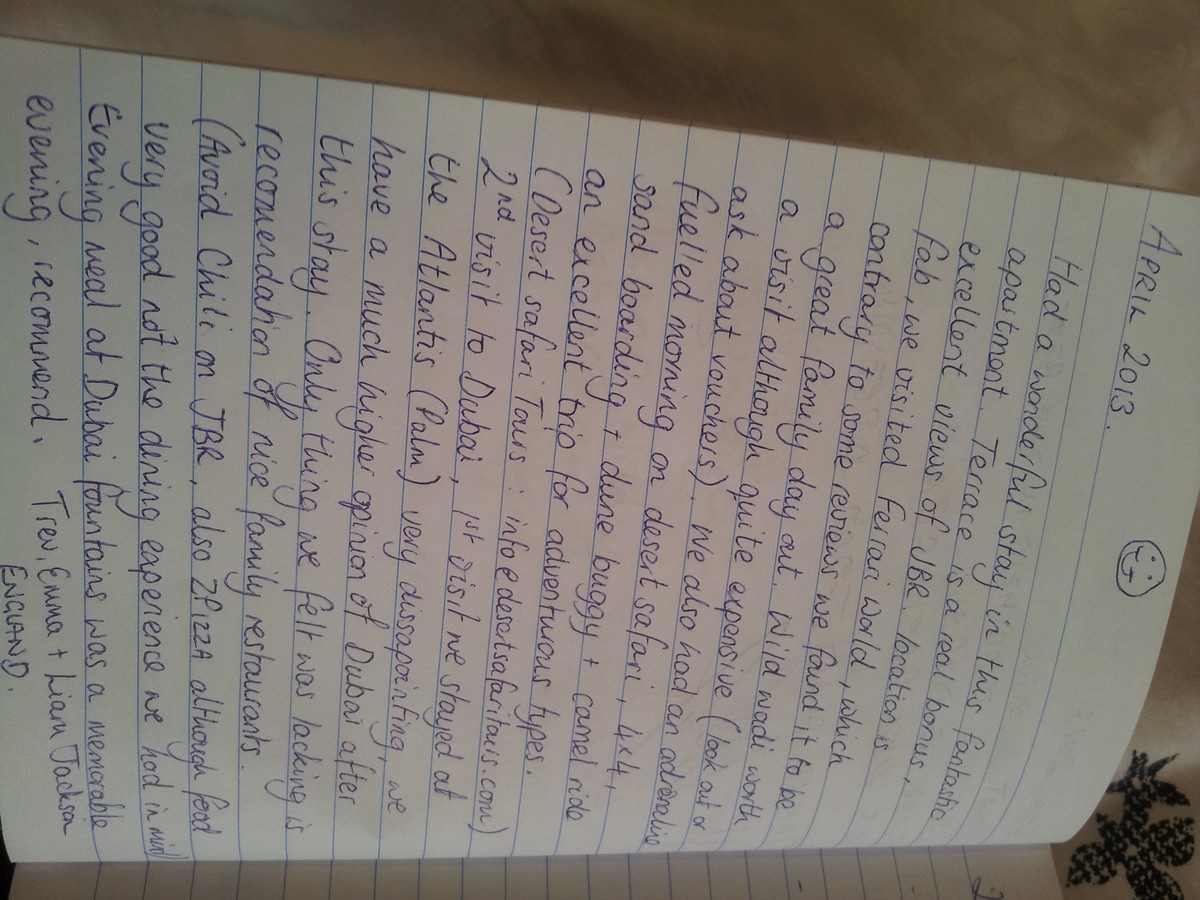 APRIL 2013.
Had a wonderful stay in this fantastic
apartment. Terrace is a real bonus,
excellent views of JBR. location is
fab, we visited Ferrari World, which
contrary to some reviews we found it to be
a great family day out. Wild wadi worth
a visit although quite expensive (look out or
ask about vouchers). We also had an adrenaline
fuelled morning on desert safari, 4x4,
sand boarding + dune buggy + camel ride
an excellent trip for adventurous types.
(Desert safari Tours : info@desertsafaritours.com)
2nd visit to Dubai, 1st visit we stayed at
the Atlantis (Palm) very dissapointing, we
have a much higher opinion of Dubai after
this stay. Only thing we felt was lacking is
recomendation of nice family restaurants.
(Avoid Chili's on JBR, also Zpizza although food
very good not the dining experience we had in mind)
Evening meal at Dubai fountains was a memorable
evening, recommend. Trev, Emma + Liam Jackson
ENGLAND.